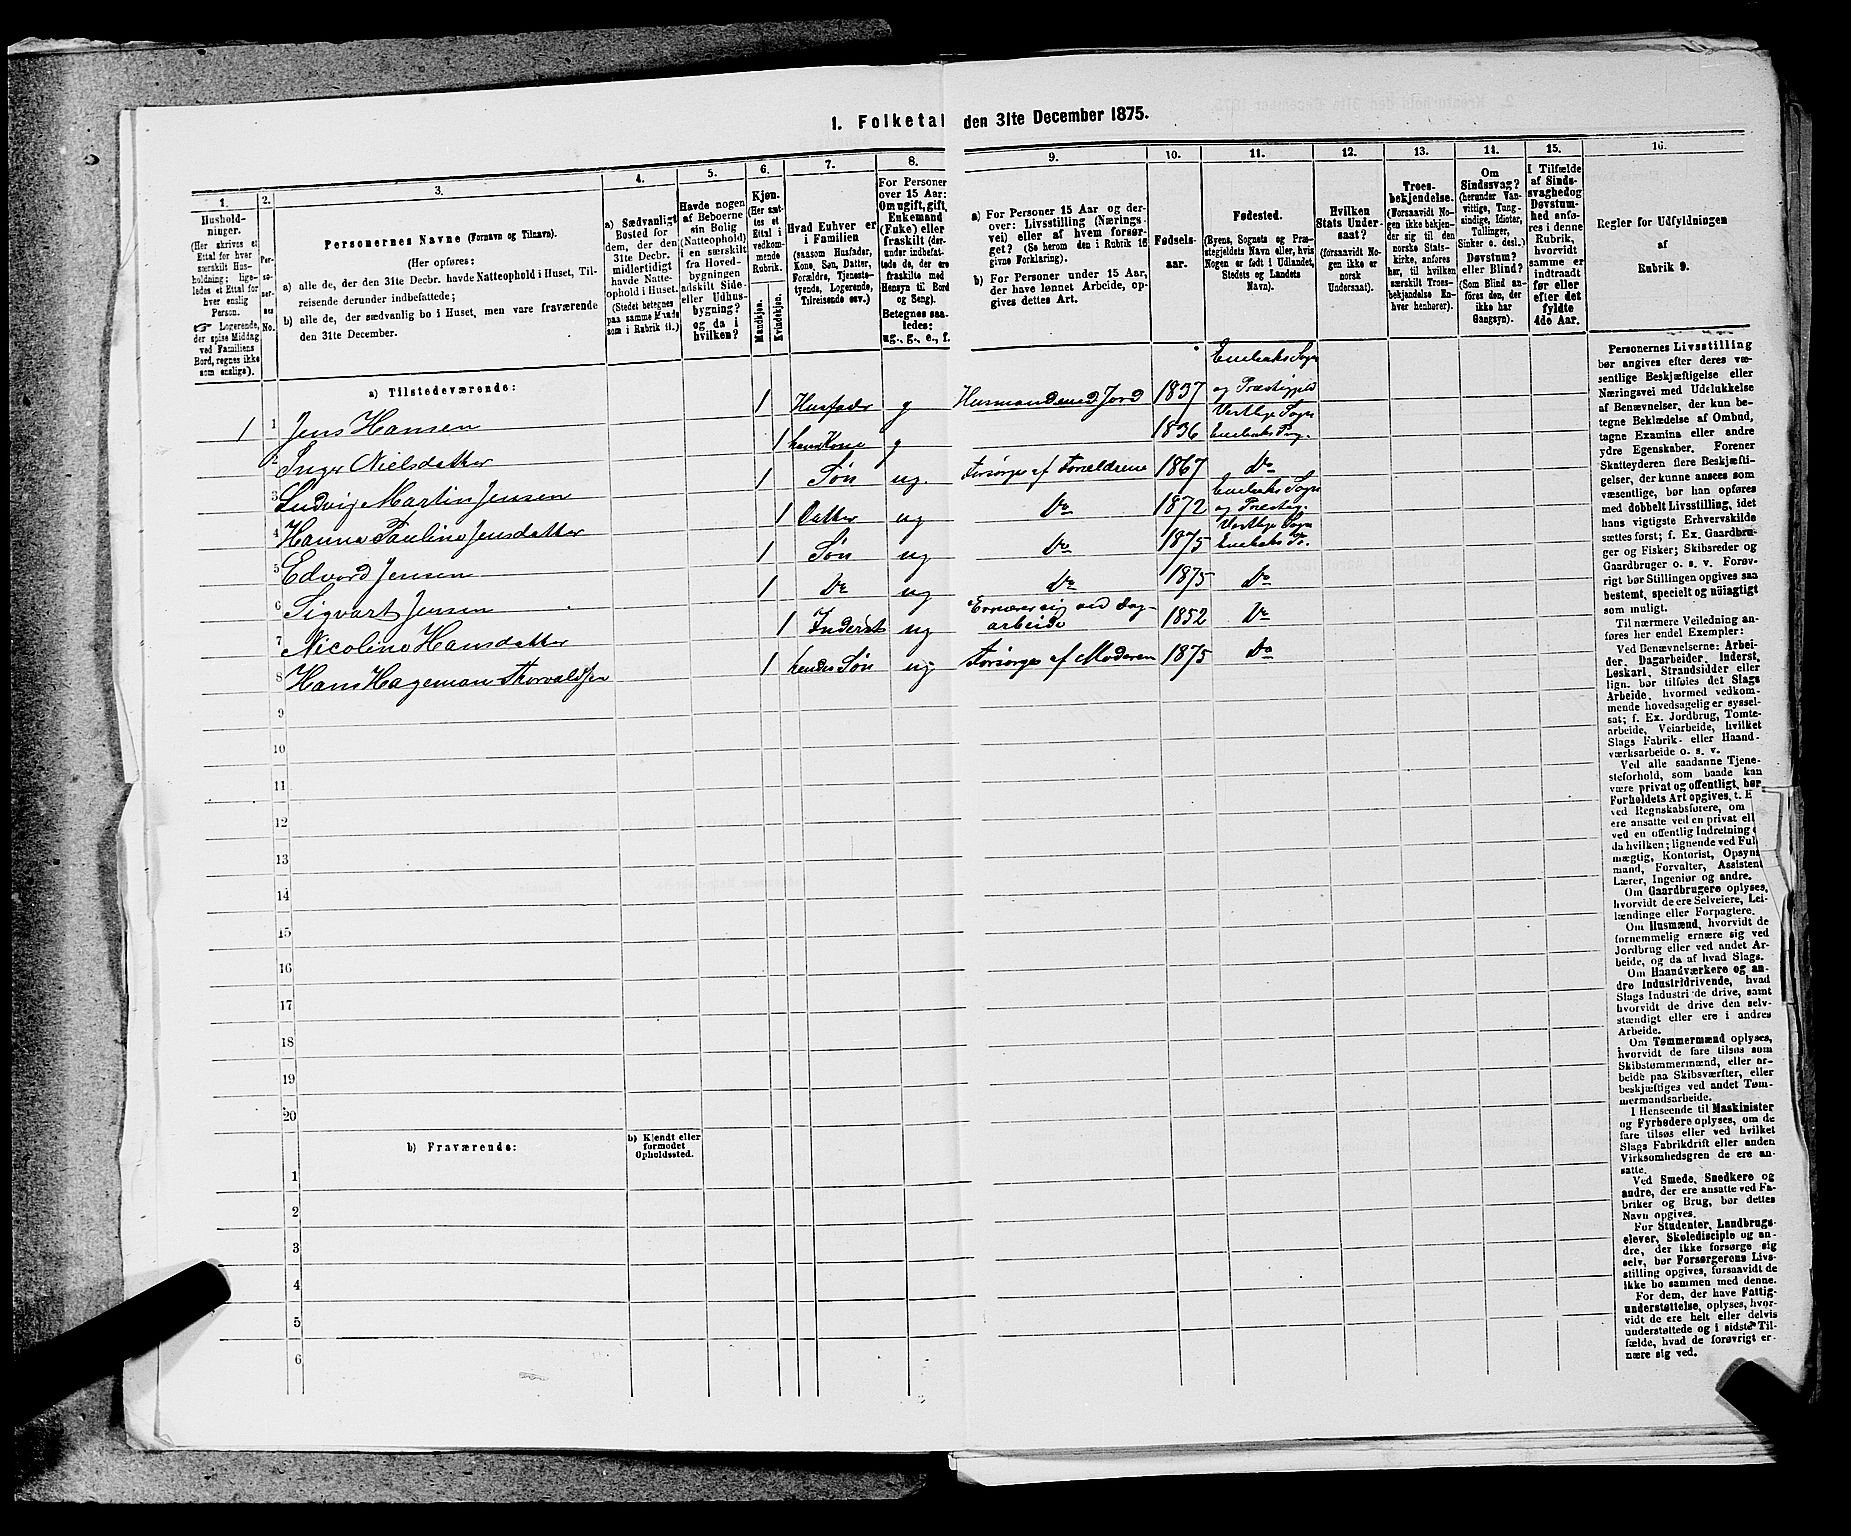 1. Folketal den 31te December 1875.
1. 2. 3. 4. 5. 6. 7. 8. 9. 10. 11. 12. 13. 14. 15. 16.
Hushold-
ninger.
(Her skrives et
Ettal for hver
særskilt Hus-
holdning; lige-
ledes et Ettal for
hver enslig
Person.
☞ Logerende,
der spise Middag
ved Familiens
Bord, regnes ikke
som enslige).
Per-
so-
ner-
nes
No.
Personernes Navne (Fornavn og Tilnavn).
(Her opføres:
a) alle de, der den 31te Decbr. havde Natteophold i Huset, Til-
reisende derunder indbefattede;
b) alle de, der sædvanlig bo i Huset, men vare fraværende
den 31te December.
a) Sædvanligt
Bosted for
dem, der den
31te Decbr.
midlertidigt
havde Natte-
ophold i Huset.
(Stedet betegnes
paa samme Maade
som i Rubrik 11.)
Havde nogen
af Beboerne
sin Bolig
(Natteophold)
i en særskilt
fra Hoved-
bygningen
adskilt Side-
eller Udhus-
bygning?
og da i
hvilken?
Kjøn.
(Her sæt-
tes et
Ettal i
vedkom-
mende
Rubrik.
Mandkjøn.
Kvindekjøn.
Hvad Enhver er
i Familien
(saasom Husfader,
Kone, Søn, Datter,
Forældre, Tjeneste-
tyende, Logerende,
Tilreisende osv.)
For Personer
over 15 Aar:
Om ugift, gift,
Enkemand
(Enke) eller
fraskilt (der-
under indbefat-
tede de, der ere
fraskilte med
Hensyn til Bord
og Seng).
Betegnes saa-
ledes:
ug., g., e., f.
a) For Personer 15 Aar og der-
over: Livsstilling (Nærings-
vei) eller af hvem forsør-
get? (Se herom den i Rubrik 16
givne Forklaring).
b) For Personer under 15 Aar,
der have lønnet Arbeide, op-
gives dettes Art.
Fødsels-
aar.
Fødested.
(Byens, Sognets og Præ-
stegjeldets Navn eller, hvis
Nogen er født i Udlandet,
Stedets og Landets
Navn).
Hvilken
Stats Under-
saat?
(forsaavidt No-
gen ikke er
norsk
Undersaat).
Troes-
bekjendelse.
(Forsaavidt No-
gen ikke bekjen-
der sig til den
norske Stats-
kirke, anføres
her, til hvilken
særskilt Troes-
bekjendelse En-
hver henhører).
Om
Sindssvag?
(herunder Van-
vittige, Tung-
sindige, Idioter,
Tullinger,
Sinker o. desl.)
Døvstum?
eller Blind?
(Som Blind an-
føres den, der
ikke har
Gangsyn).
I Tilfælde
af Sinds-
svaghed og
Døvstum-
hed anfø-
res i denne
Rubrik,
hvorvidt
samme er
indtraadt
før eller
efter det
fyldte
4de Aar.
Regler for Udfyldningen
af
Rubrik 9.
a) Tilstedeværende:
1 1 Jens Hansen 1 Husfader g Husmand med Jord 1837 Enebaks Sogn og Præstegjeld
2 Inger Nielsdatter 1 hans Kone g 1836 Vestbye Sogn Enebaks Prg.
3 Ludvig Martin Jensen 1 Søn ug. Forsørges af Forældrene 1867 Do
4 Hanna Pauline Jensdatter 1 Datter ug Do 1872 Enebaks Sogn og Præsteg.
5 Edvard Jensen 1 Søn ug Do 1875 Vestbye Sogn Enebaks Pr.
6 Sigvart Jensen 1 Do ug Do 1875 Do
7 Nicoline Hansdatter 1 Inderst ug Ernærer sig ved Dag-
arbeide 1852 Do
8 Hans Hageman Thorvaldsen 1 hendes Søn ug. Forsørges af Moderen 1875 Do
9
10
11
12
13
14
15
16
17
18
19
20
b) Fraværende:
b) Kjendt eller
formodet
Opholdssted.
1
2
3
4
5
6
Personernes Livsstilling
bør angives efter deres væ-
sentlige Beskjæftigelse eller
Næringsvei med Udelukkelse
af Benævnelser, der kun be-
tegne Beklædelse af Ombud,
tagne Examina eller andre
ydre Egenskaber. Forener
Skatteyderen flere Beskjæfti-
gelser, der kunne ansees som
væsentlige, bør han opføres
med dobbelt Livsstilling, idet
hans vigtigste Erhvervskilde
sættes først; f. Ex. Gaardbru-
ger og Fisker; Skibsreder og
Gaardbruger o. s. v. Forøv-
rigt bør Stillingen opgives saa
bestemt, specielt og nøiagtigt
som muligt.
Til nærmere Veiledning an-
føres her endel Exempler:
Ved Benævnelserne: Arbei-
der, Dagarbeider, Inderst,
Løskarl, Strandsidder eller
lign. bør tilføies det Slags
Arbeide, hvormed vedkom-
mende hovedsagelig er syssel-
sat; f. Ex. Jordbrug, Tomte-
arbeide, Veiarbeide, hvilket
Slags Fabrik- eller Haand-
værksarbeide o. s. v.
Ved alle saadanne Tjene-
steforhold, som baade kan
være privat og offentligt, bør
Forholdets Art opgives, t. E
ved Regnskabsførere, om
ere ansatte ved en privat ell
ved en offentlig Indretning
da hvilken; lignende ved Ful
mægtig, Kontorist, Opsyns
mand, Forvalter, Assistent
Lærer, Ingeniør og andre.
Om Gaardbrugere oplyses,
hvorvidt de ere Selveiere, Lei-
lændinge eller Forpagtere.
Om Husmænd, hvorvidt de
fornemmelig ernære sig ved
Jordbrug eller ved andet Ar-
beide, og da af hvad Slags.
Om Haandværkere og an-
dre Industridrivende, hvad
Slags Industri de drive, samt
hvorvidt de drive den selv-
stændigt eller ere i andres
Arbeide.
Om Tømmermænd oplyses,
hvorvidt de fare tilsøs som
Skibstømmermænd, eller ar-
beide paa Skibsværfter, eller
beskjæftiges ved andet Tøm-
mermandsarbeide.
I Henseende til Maskinister
og Fyrbødere oplyses, om de
fare tilsøs eller ved hvilket
Slags Fabrikdrift eller anden
Virksomhedsgren de ere an-
satte.
Ved Smede, Snedkere og
andre, der ere ansatte ved Fa-
briker og Brug, bør dettes
Navn opgives.
For Studenter, Landbrugs-
elever, Skoledisciple og an-
dre, der ikke forsørge sig
selv, bør Forsørgerens Livs-
stilling opgives, forsaavidt de
ikke bo sammen med denne.
For dem, der have Fattig-
understøttelse, oplyses, hvor-
vidt de ere helt eller delvis
understøttede og i sidste Til-
fælde, hvad de forøvrigt er-
nære sig ved.